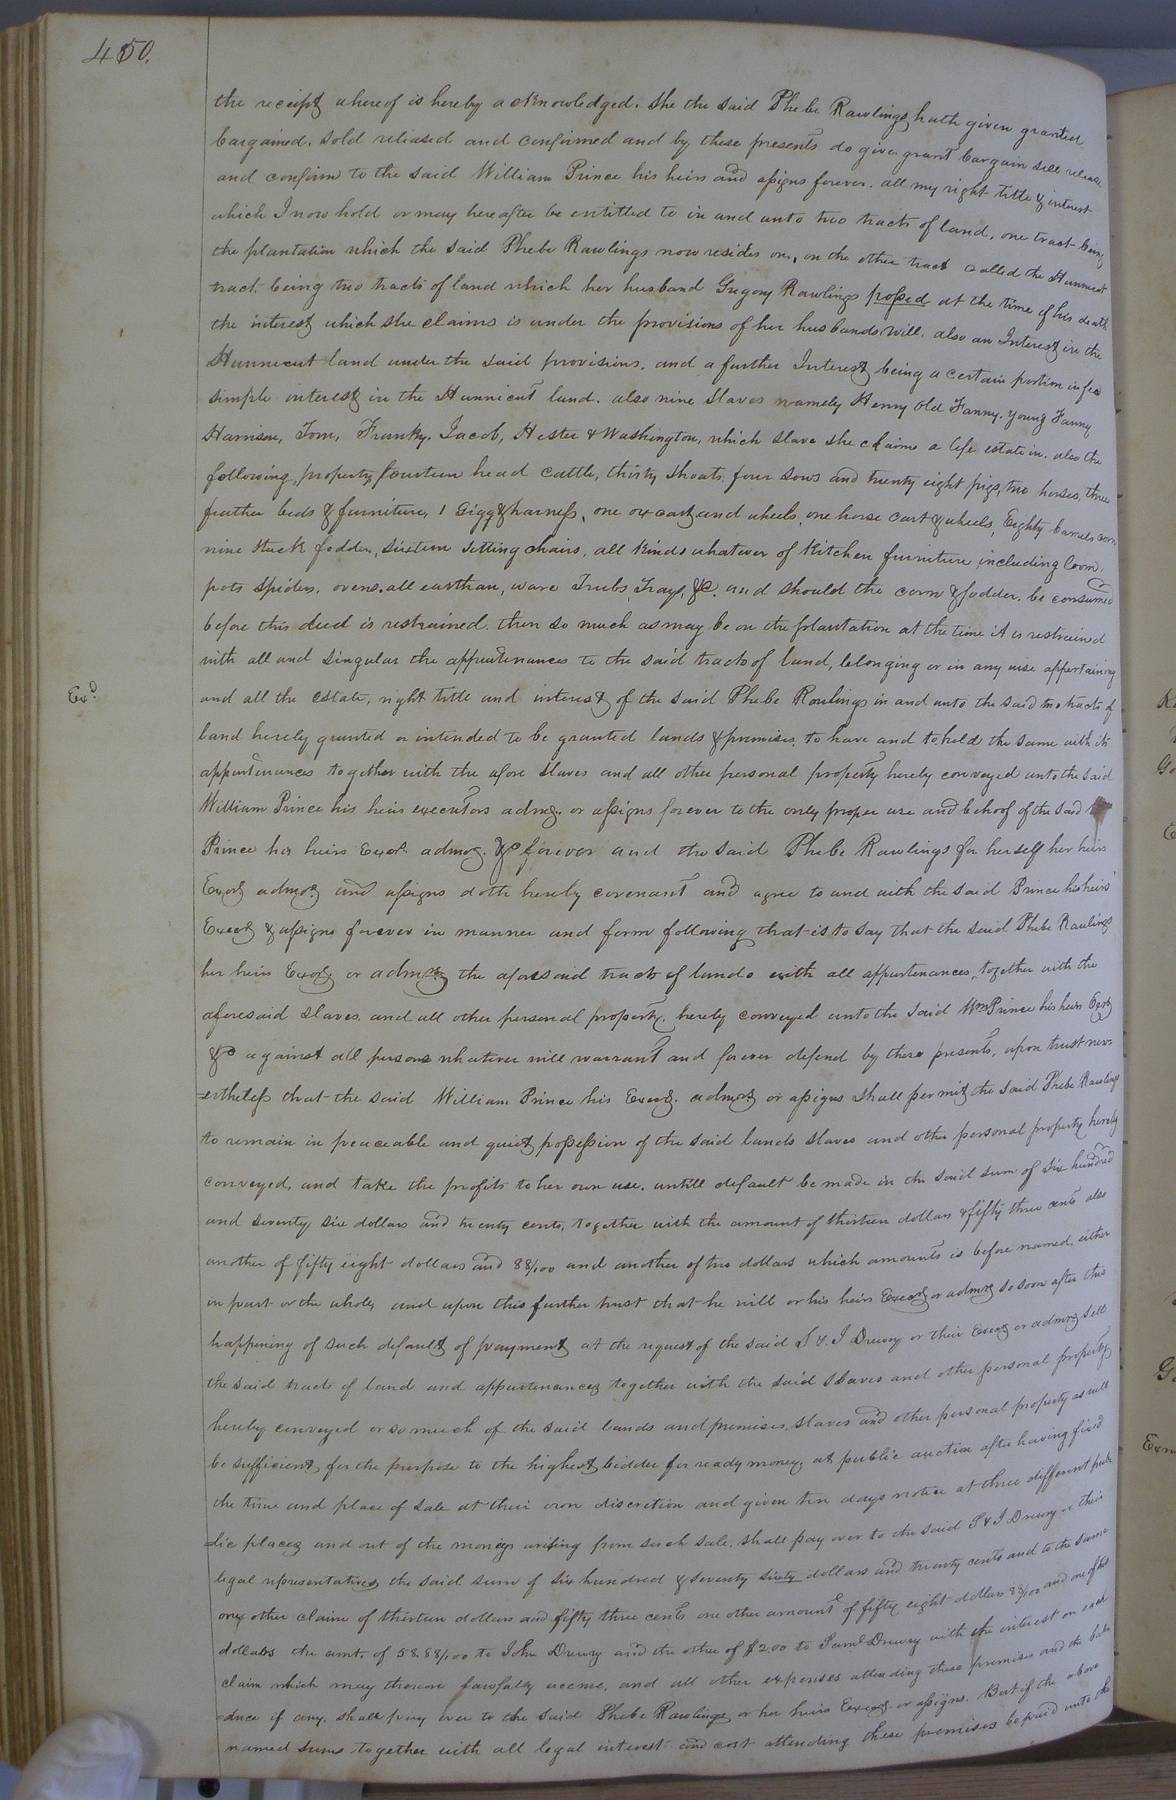 450.
the receipt whereof is hereby acknowledged. She the said Phebe Rawlings hath given granted
bargained, sold released and confirmed and by these presents do give grant bargain sell release
and confirm to the said William Prince his heirs and assigns forever. all my right title & interest
which I now hold or may hereafter be entitled to in and unto two tracts of land, one tract being
the plantation which the said Phebe Rawlings now resides on, on the other tract called the Hunnicut
tract. being two tracts of land which her husband Gregory Rawlings possed at the time of his death
the interest which she claims is under the provisions of her husbands will. also an Interest in the
Hunnicut land under the said provisions. and a further Interest being a certain portion in fee
simple interest in the Hunnicut land. also nine Slaves namely Henny Old Fanny. young Fanny
Harrison, Tom, Franky. Jacob, Hester & Washington, which slave she claims a life estate in. also the
following, property fourteen head cattle, thirty shoats. four sows and twenty eight pigs, two horses, three
feather beds & furniture, 1 Gigg & harness, one ox cart and wheels, one horse cart & wheels, Eighty barrels corn
nine stack fodder, sixteen setting chairs, all kinds whatever of Kitchen furniture including loom,
pots spiders, ovens. all earthan, ware Trubs, Trays, &c. and should the corn & fodder. be consumed
before this deed is restrained. then so much as may be on the plantation at the time it is restrained
with all and singular the appurtenances to the said tracts of land, belonging or in any wise appertaining
Exd.
and all the estate, right title and interest of the said Phebe Rawlings in and unto the said two tracts of
land hereby granted or intended to be granted lands & premises. to have and to hold the same with its
appurtenances together with the afore slaves and all other personal property hereby conveyed unto the said
William Prince his heirs executors admrs. or assigns forever to the only proper use and behoof of the said
Prince his heirs Exors. admrs. &c forever and the said Phebe Rawlings for herself her heirs
Exors admrs. and assigns doth hereby covenant and agree to and with the said Prince his heirs
Execs & assigns forever in manner and form following that is to say that the said Phebe Rawlings
her heirs Exors or admrs the aforesaid tracts of lands with all appurtenances, together with the
aforesaid slaves. and all other personal property. hereby conveyed unto the said Wm Prince his heirs Exors
&c against all persons whatever will warrant and forever defend by these presents, upon trust nev-
=ertheless that the said William Prince his Execs. admrs or assigns shall permit the said Phebe Rawlings
to remain in peaceable and quiet possession of the said lands slaves and other personal property hereby
conveyed, and take the profits to her own use. untill default be made in the said sum of six hundred
and seventy six dollars and twenty cents, together with the amount of thirteen dollars & fifty three cents also
another of fifty eight dollars and 88/100 and another of two dollars which amounts is before named, either
in part or the whole, and upon this further trust that he will or his heirs Execs or admrs so soon after this
happening of such default of payment at the request of the said S & J Drewry or their Execs or admrs sell
the said tracts of land and appurtenances together with the said Slaves and other personal property
hereby conveyed or so much of the said lands and premises, slaves and other personal property as will
be sufficient for the purpose to the highest bidder for ready money, at public auction after having fixed
the time and place of sale at their own discretion and given ten days notice at three different pub=
=lic places and out of the moneys arising from such sale. shall pay over to the said S & J Drewry or their
legal representatives the said sum of six hundred & seventy sixty dollars and twenty cents and to the same
one other claim of thirteen dollars and fifty three cents one other amount of fifty eight dollars 88/100 and one of two
dollars the amt. of 58.88/100 to John Drewry and the other of $2.00 to Saml Drewry with the interest on each
claim which may thereon lawfully accrue, and all other expenses attending these premises and the bala
=ance if any. shall pay over to the said Phebe Rawlings or her heirs Execs. or assigns. But if the above
named sums together with all legal interest and cost attending these premises be paid unto the